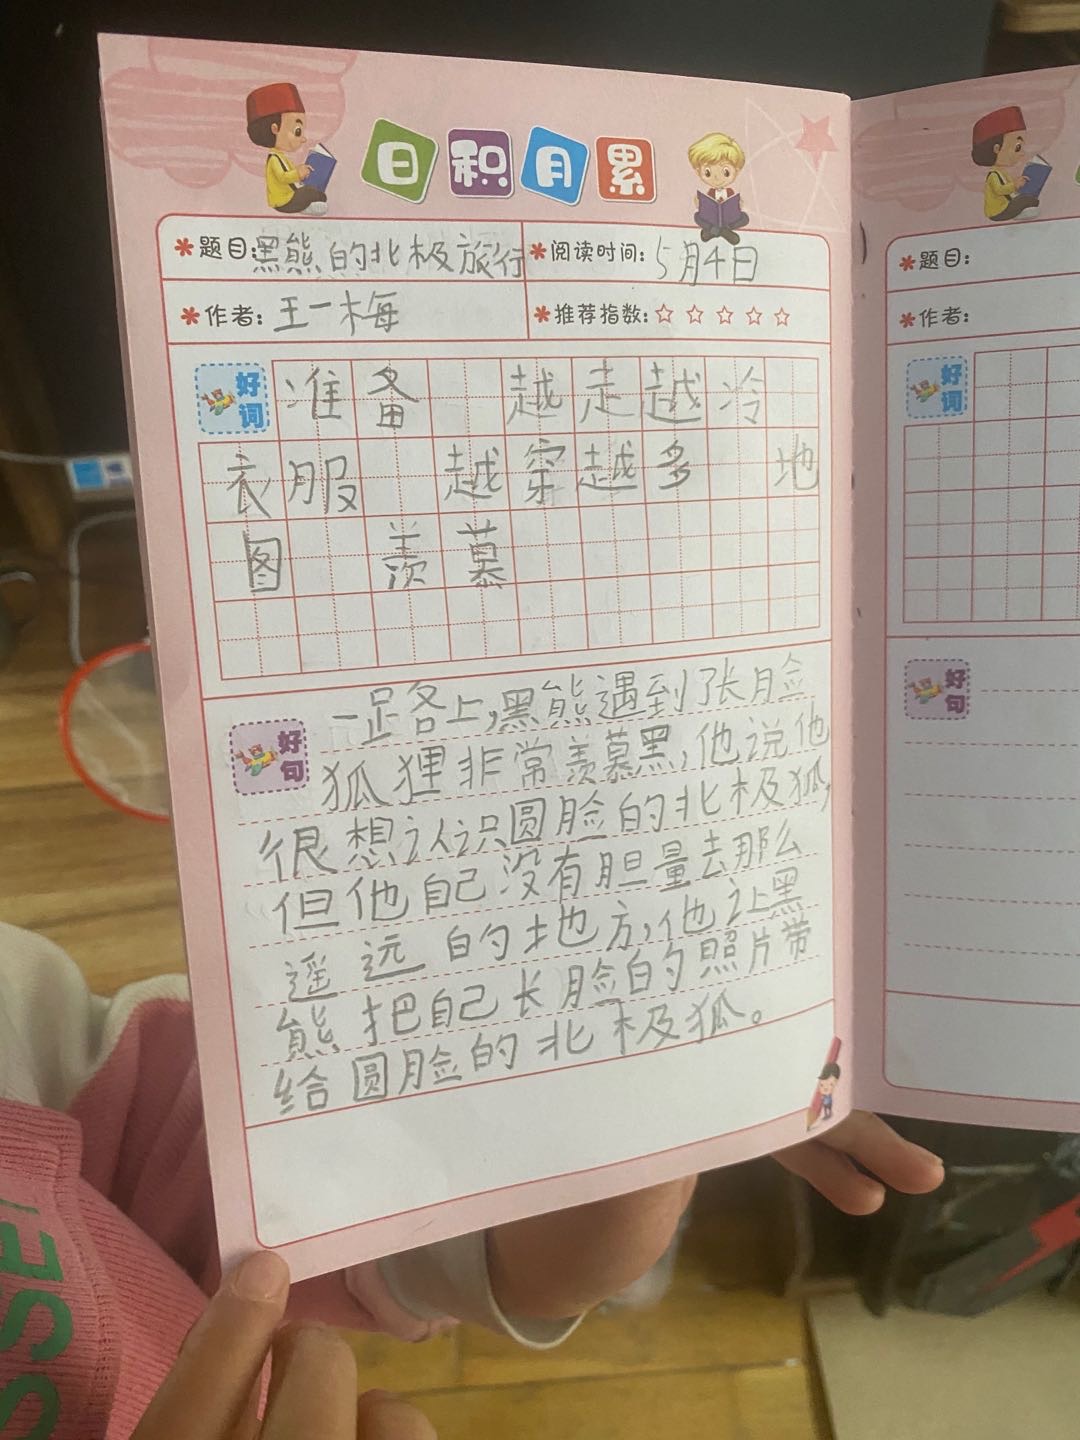 日积月累
题目:黑熊的北极旅行
阅读时间:5月4日
作者:王一梅
推荐指数:☆☆☆☆☆
好词
准备 越走越冷
衣服 越穿越多 地
图 羡慕
好句
一路上,黑熊遇到长脸
狐狸非常羡慕黑,他说他
很想认识圆脸的北极狐,
但他自己没有胆量去那么
遥远的地方,他让黑
熊把自己长脸的照片带
给圆脸的北极狐。
题目:
作者:
好词
好句